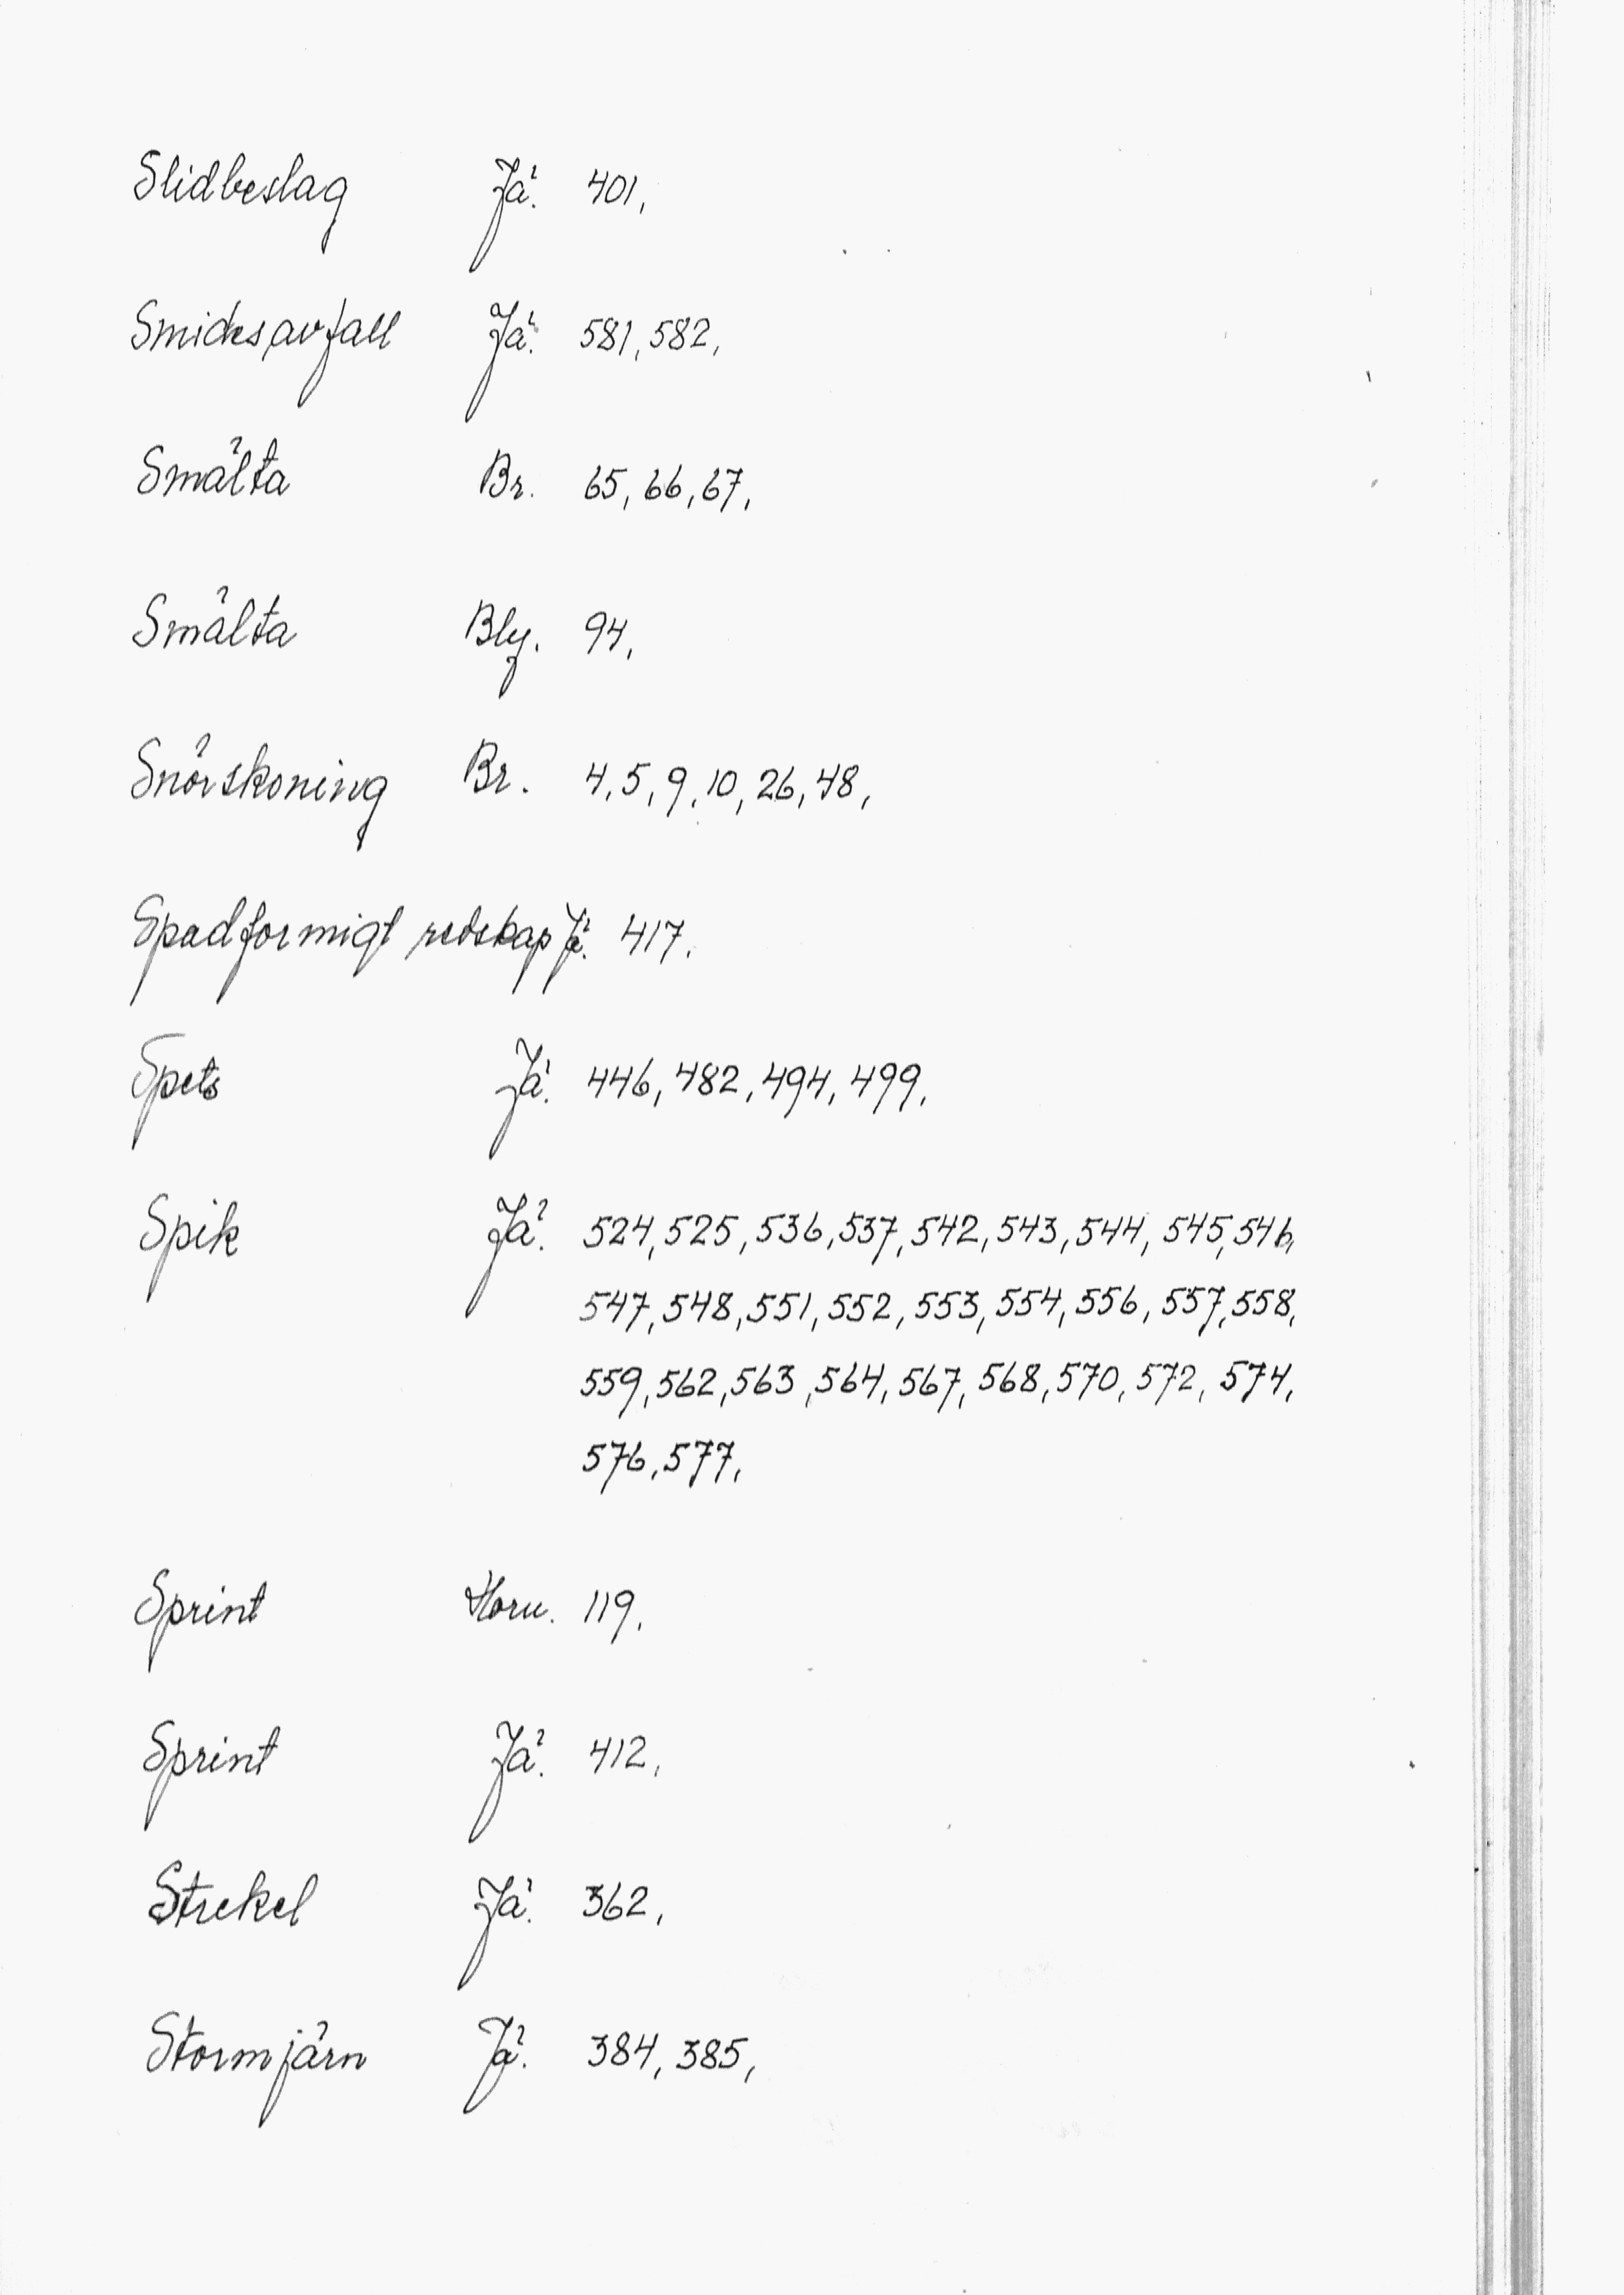 Slidbeslag Jä. 401,
Smidesavfall Jä. 581, 582,
Smälta Br. 65, 66, 67,
Smälta Bly. 94,
Snörskoning Br. 4, 5, 9, 10, 26, 48,
Spadformigt redskap Jä. 417.
Spets Jä. 446, 482, 494, 499,
Spik Jä. 524, 525, 536, 537, 542, 543, 544, 545, 546,
547, 548, 551, 552, 553, 554, 556, 557, 558,
559, 562, 563, 564, 567, 568, 570, 572, 574,
576, 577,
Sprint Horn. 119,
Sprint Jä. 412,
Strekel Jä. 362,
Stormjärn Jä. 384, 385,